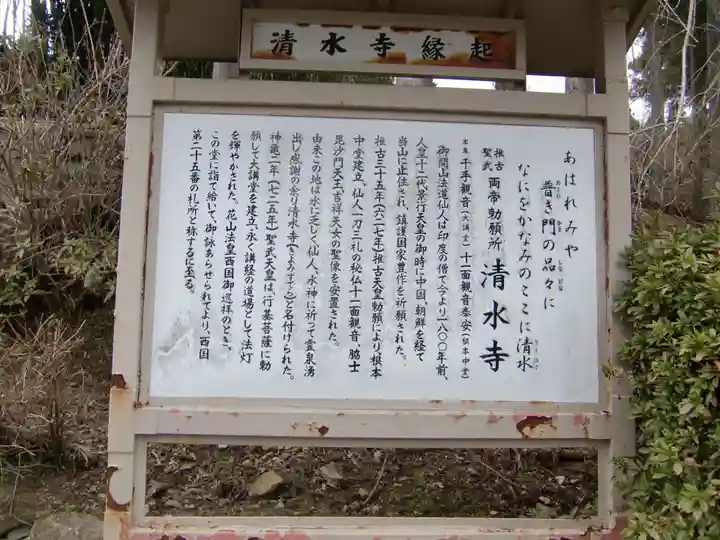 清水寺縁起
あはれみや
普き門の品々に
なにをかなみのここに清水
推古
聖武
両帝勅願所 清水寺
本尊 千手観音(大講堂) 十一面観音奉安(根本中堂)
御開山法道仙人は印度の僧で今より一八〇〇年前、
人皇十二代景行天皇の御時に中国、朝鮮を経て
当山に止住され、鎮護国家豊作を祈願された。
推古三十五年(六二七年)推古天皇勅願により根本
中堂建立。仙人一刀三礼の秘仏十一面観音、脇士
毘沙門天王、吉祥天女の聖像を安置された。
由来この地は水に乏しく仙人、水神に祈って霊泉湧
出し感謝の余り清水寺(きよみずでら)と名付けられた。
神亀二年(七二五年)聖武天皇は、行基菩薩に勅
願して大講堂を建立、永く講経の道場として法灯
を輝やかされた。花山法皇西国御巡拝のとき、
この堂に詣て給いて、御詠あらせられてより、西国
第二十五番の札所と称するに至る。